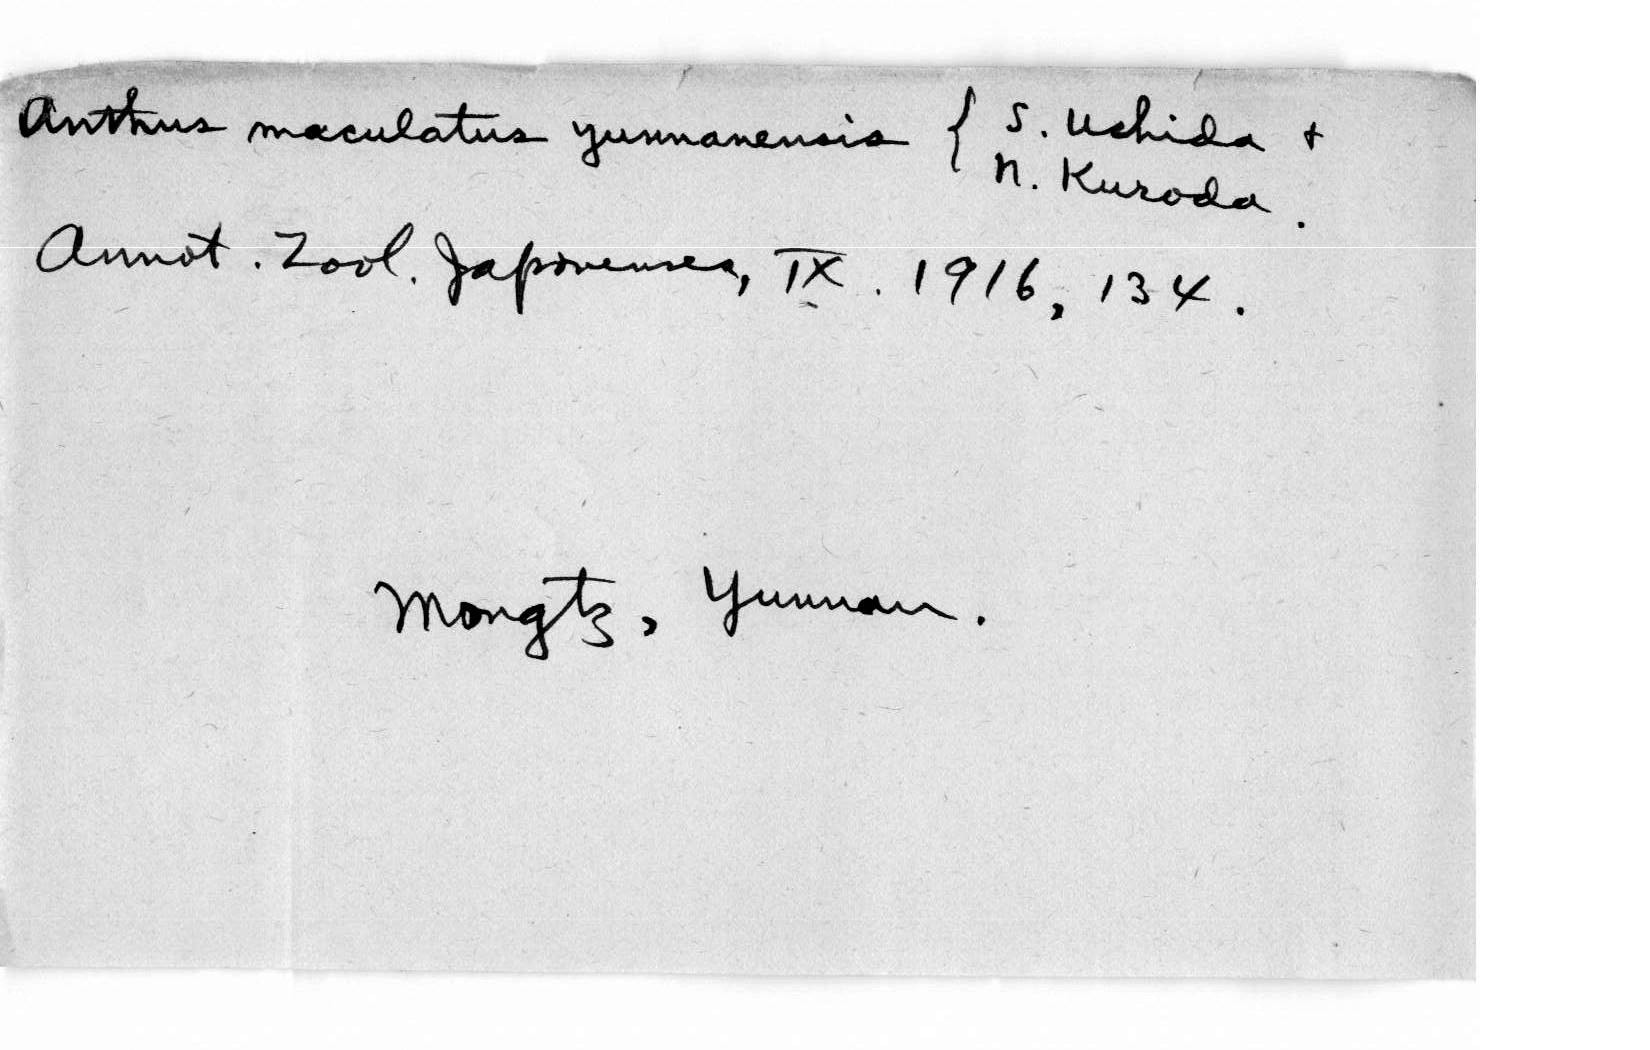 Anthus maculatus yunnanensis { S. Uchida +
N. Kuroda.
Annot. Zool. Japonenses, IX. 1916, 134.
Mongtz, Yunnan.